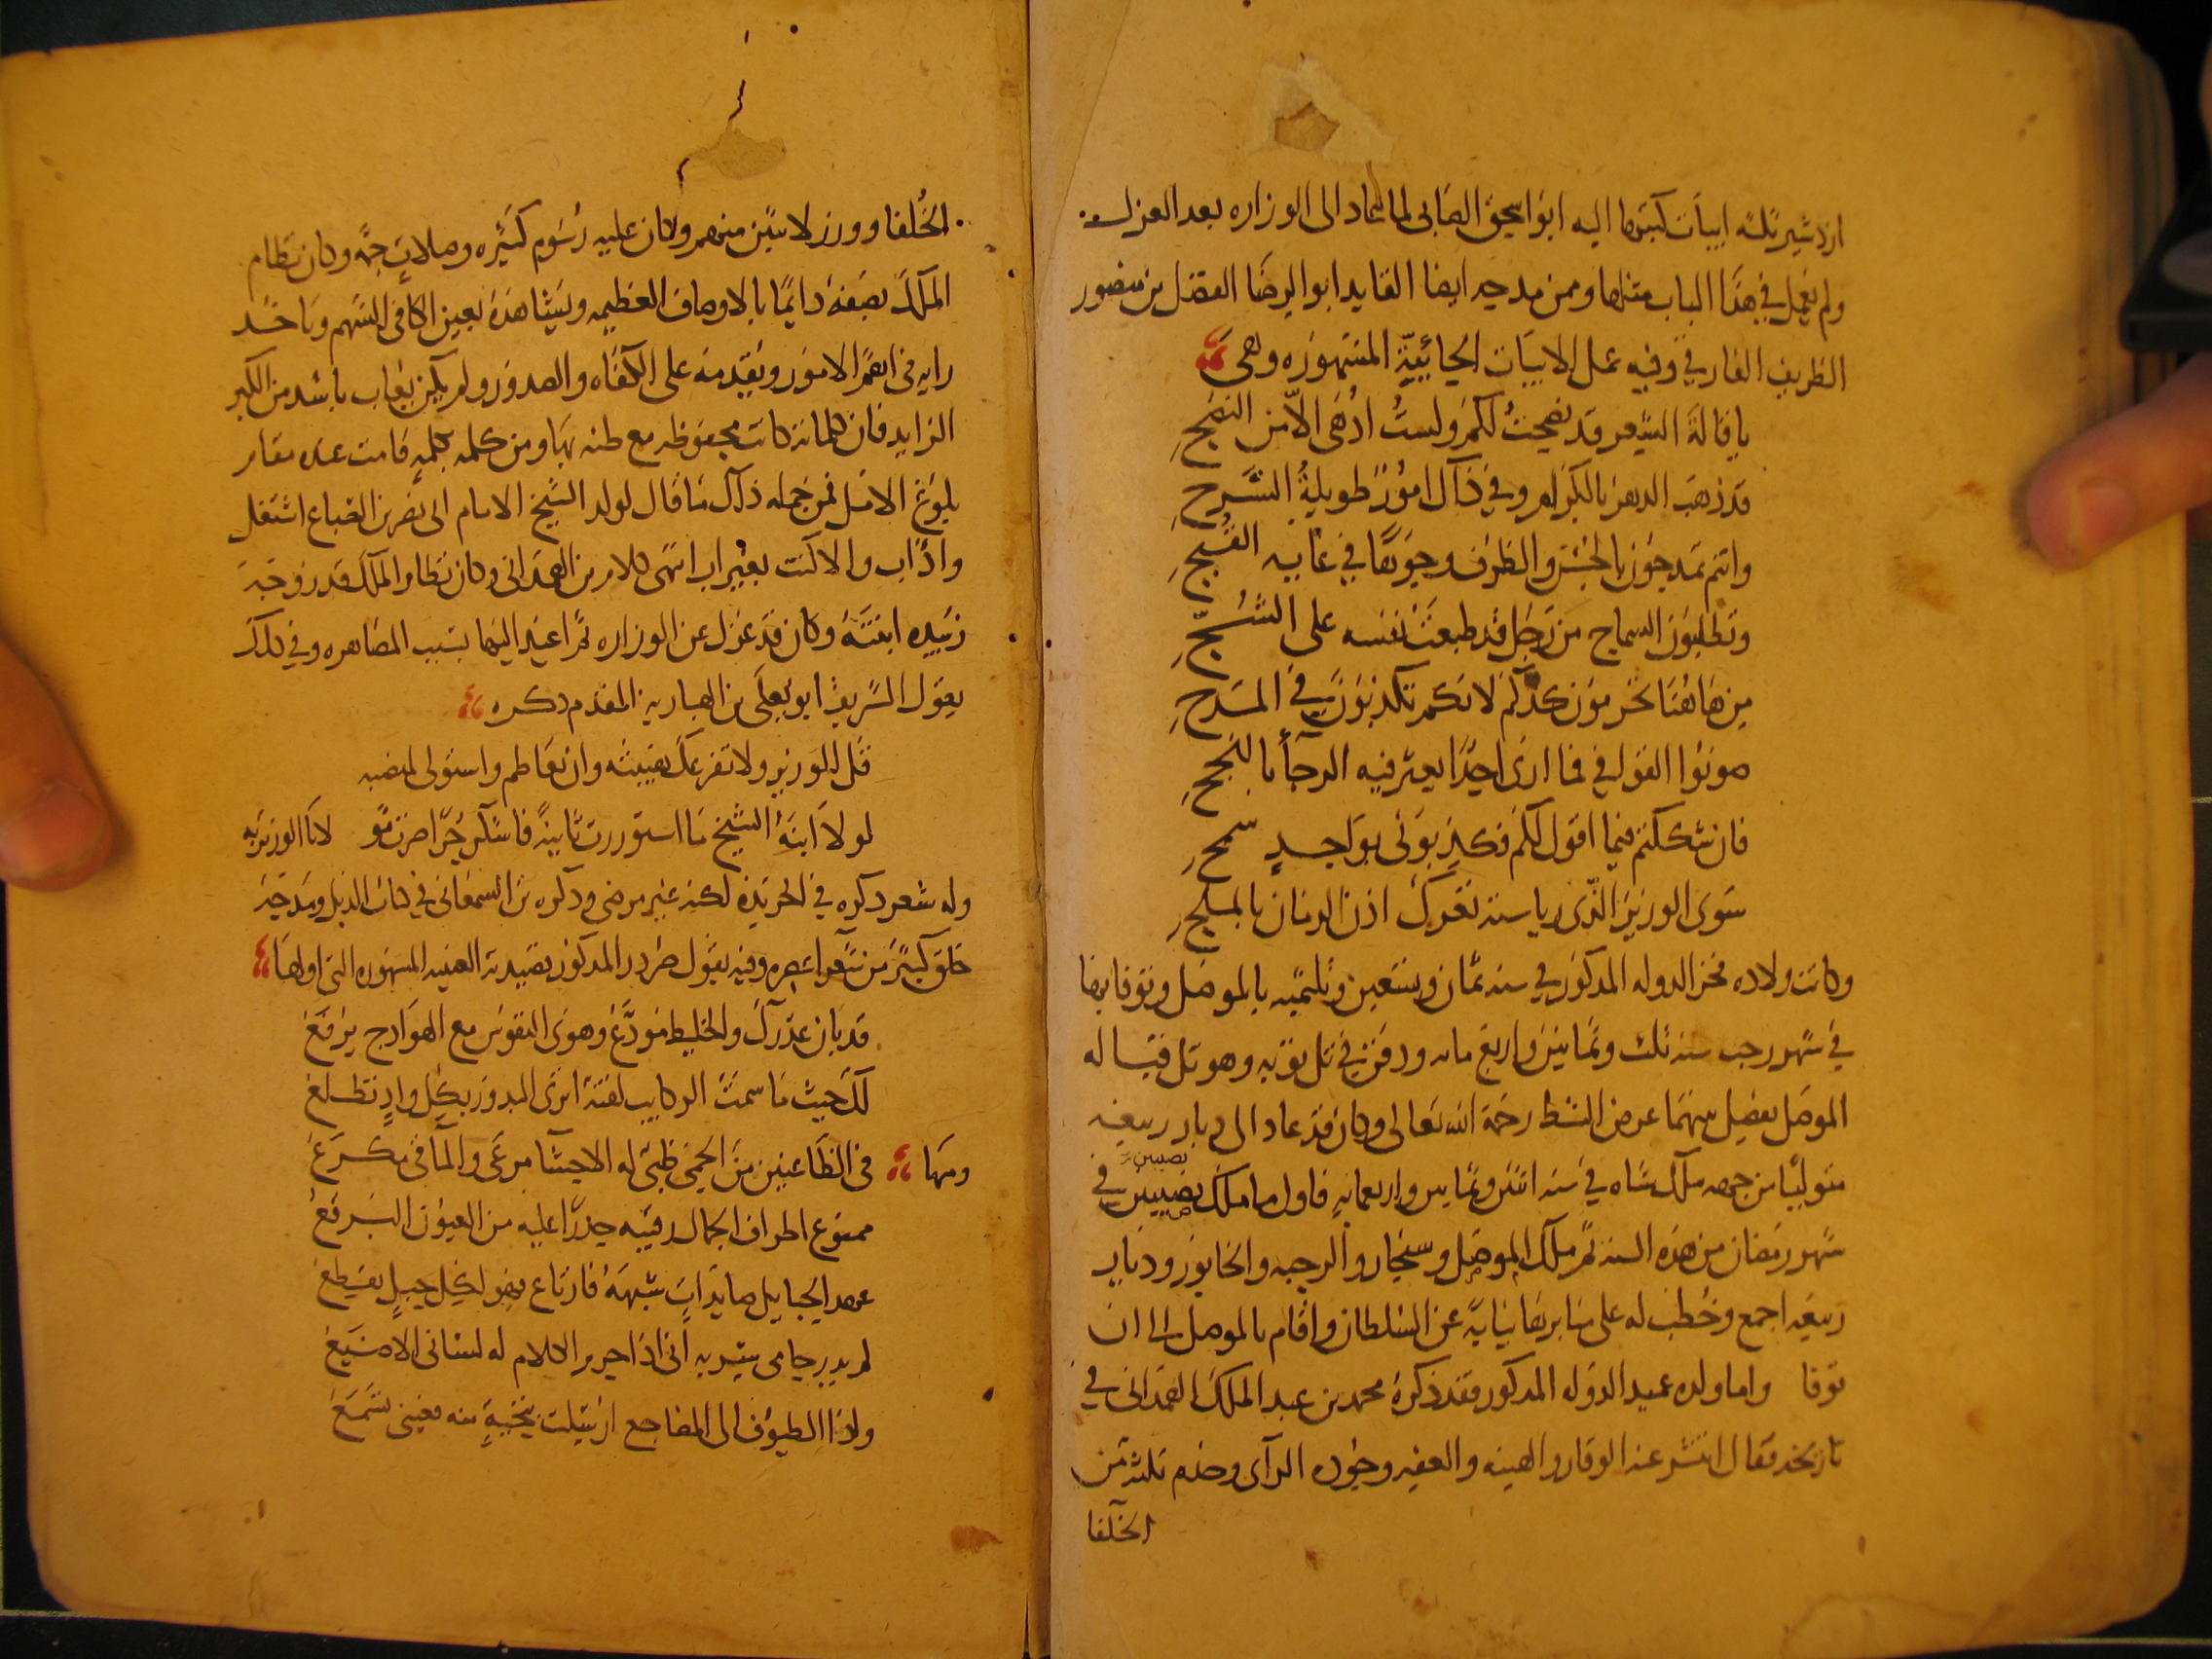 اردشير ثلثه ابيات كتبها اليه ابو اسحق الصابى لما عاد الى الوزاره بعد العزل
ولم يعمل في هذا الباب مثلها وممن مدحه ايضا القايد ابو الرضا الفضل بن منصور
الظريف الفارقي وفيه عمل الابيات الحائيّية المشهوره وهى
يا قالة الشعر قد نصحتُ لكم ولستُ ادُهَى الاّ من النصح
قد ذهب الدهر بالكرام وفي ذاك امورٌ طويلةُ الشرح
وانتم تمدحون بالحسن والظرف وجوهًا في غايه القُبحِ
وتطلبون السماح من رجل قد طبعت نفسه على الشُّحِّ
من هاهنا تحرمون كدكم لانكم تكذبون في المدحِ
صونوا القوافي فما ارى احدًا يعثر فيه الرجآء بالنجحِ
فان شككتم فيما اقول لكم فكذبوني بواحدٍ سمحِ
سوى الوزير الذى رياسته تعرك اذن الزمان بالملحِ
وكانت ولاده فخر الدوله المذكور في سنه ثمان وتسعين وثلثميه بالموصل وتوفا بها
في شهر رجب سنه ثلث وثمانين واربع مايه ودفن في تل توبه وهو تل قباله
الموصل يفصل بينهما عرض الشط رحمة الله تعالى وكان قد عاد الى ديار ربيعه
متوليًا من جهه ملك شاه في سنه اثنين وثمانين واربعمايه فاول ما ملك نصيبين في
نصيبين
شهر رمضان من هذه السنه ثم ملك الموصل وسنجار والرحبه والخابور وديار
ربيعه اجمع وخُطب له على منابرها نيابةً عن السلطان واقام بالموصل الى ان
توفا واما ولده عميد الدوله المذكور فقد ذكرهُ محمد بن عبد الملك الهمدانى في
تاريخه فقال انتشر عنه الوقار والهيبه والعفه وجوده الرآى وخدم ثلثه من
الخلفا
الخُلفا ووزر لاثنين منهم وكان عليه رُسوم كثيره وصلات جمّه وكان نظام
الملك يصفهُ دايمًا بالاوصاف العظيمه ويشاهدهُ بعين الكافى الشهم وياخذ
رايه فى اهمّ الامور ويقدمه على الكفاه والصدور ولم يكن يُعاب باشد من الكبر
الزايد فان كلماته كانت محفوظه مع ظنه بها ومن كلمه بكلمةٍ قامت عنده مقام
بلوغ الامل فمن جمله ذلك ما قال لولد الشيخ الامام ابى نصر بن الصباغ اشتغل
واداب والا كنت بغير اب انتهى كلام بن الهمدانى وكان نظام الملك قد زوجه
زبيده ابنتهُ وكان قد عزل عن الوزاره ثم اعيد اليها بسبب المصاهره وفي ذلك
يقول الشريف ابو يعلى بن الهباريه المقدم ذكره
قل للوزير ولا تفزعك هيبته وان تعاظم واستولى لمنصبه
لولا ابنهُ الشيخ ما استوزرت ثانيةً فاشكر حِرًّا صرت مولانا الوزير به
وله شعر ذكره في الخريده لكنه غير مرضى وذكره بن السمعانى في كتاب الذيل ومدحه
خلق كثير من شعرآء عصره وفيه يقول صُرّ در المذكور قصيدته العينيه المشهوره التى اولها
قد بان عذرك والخليط مُودّع وهوى النفوس مع الهوادج يرفع
لك حيث ما سمت الركايب لفتةً اترى البدور بكل وادٍ تطلع
ومنها فى الظاعنين من الحمى ظبىٌ له الاحشآ مرعَى والمآقى مكرعُ
ممنوع اطراف الجمال رقيبه حذرًا عليه من العيون البرقعُ
عهد الحبايل صايداتٍ شبههُ فارتاع فهو لكل حبلٍ يقطع
لم يدر حامى سِربه انى اذا حرم الكلام له لسانى الاصبعُ
واذا الطيوف الى المضاجع ارسلت بتحيةٍ منه فعينى تسمعُ